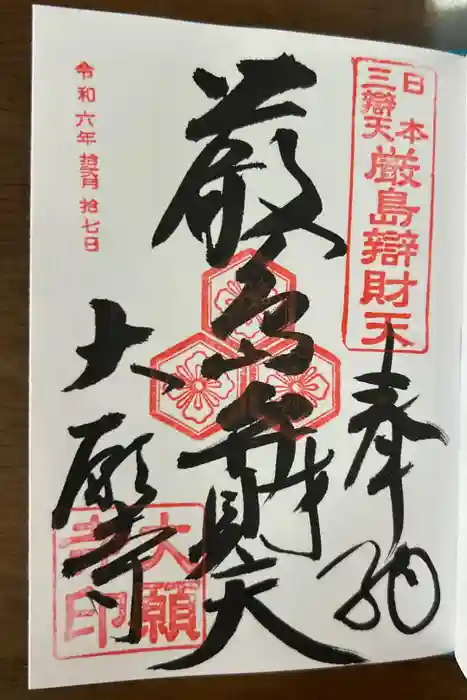 日本
三辯天
厳島辯財天
奉納
厳島弁財天
大願寺
大願
寺印
令和六年 拾弐月 拾七日